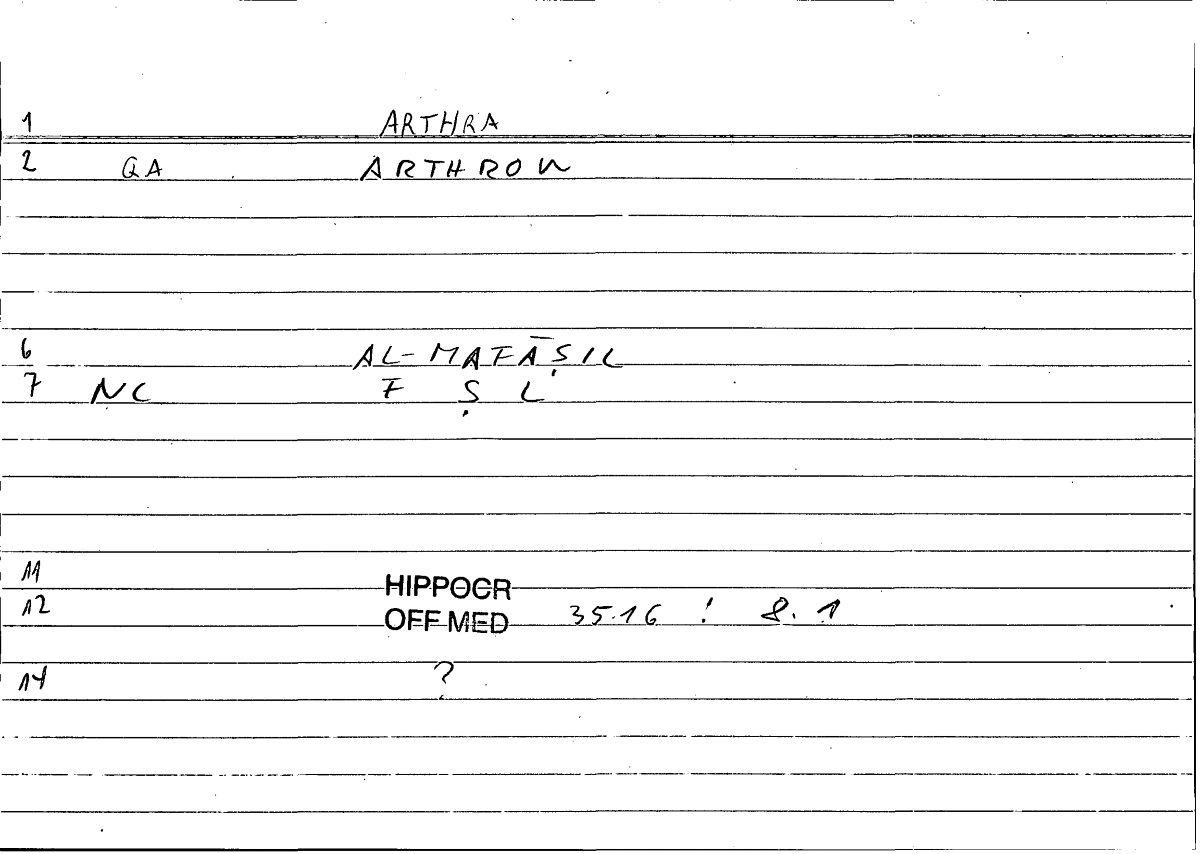 1 ARTHRA
2 QA ARTHRON
6 AL-MAFĀṢIL
7 NC F Ṣ L
11 HIPPOCR
12 OFF MED 35.16 ! 8.1
14 ?